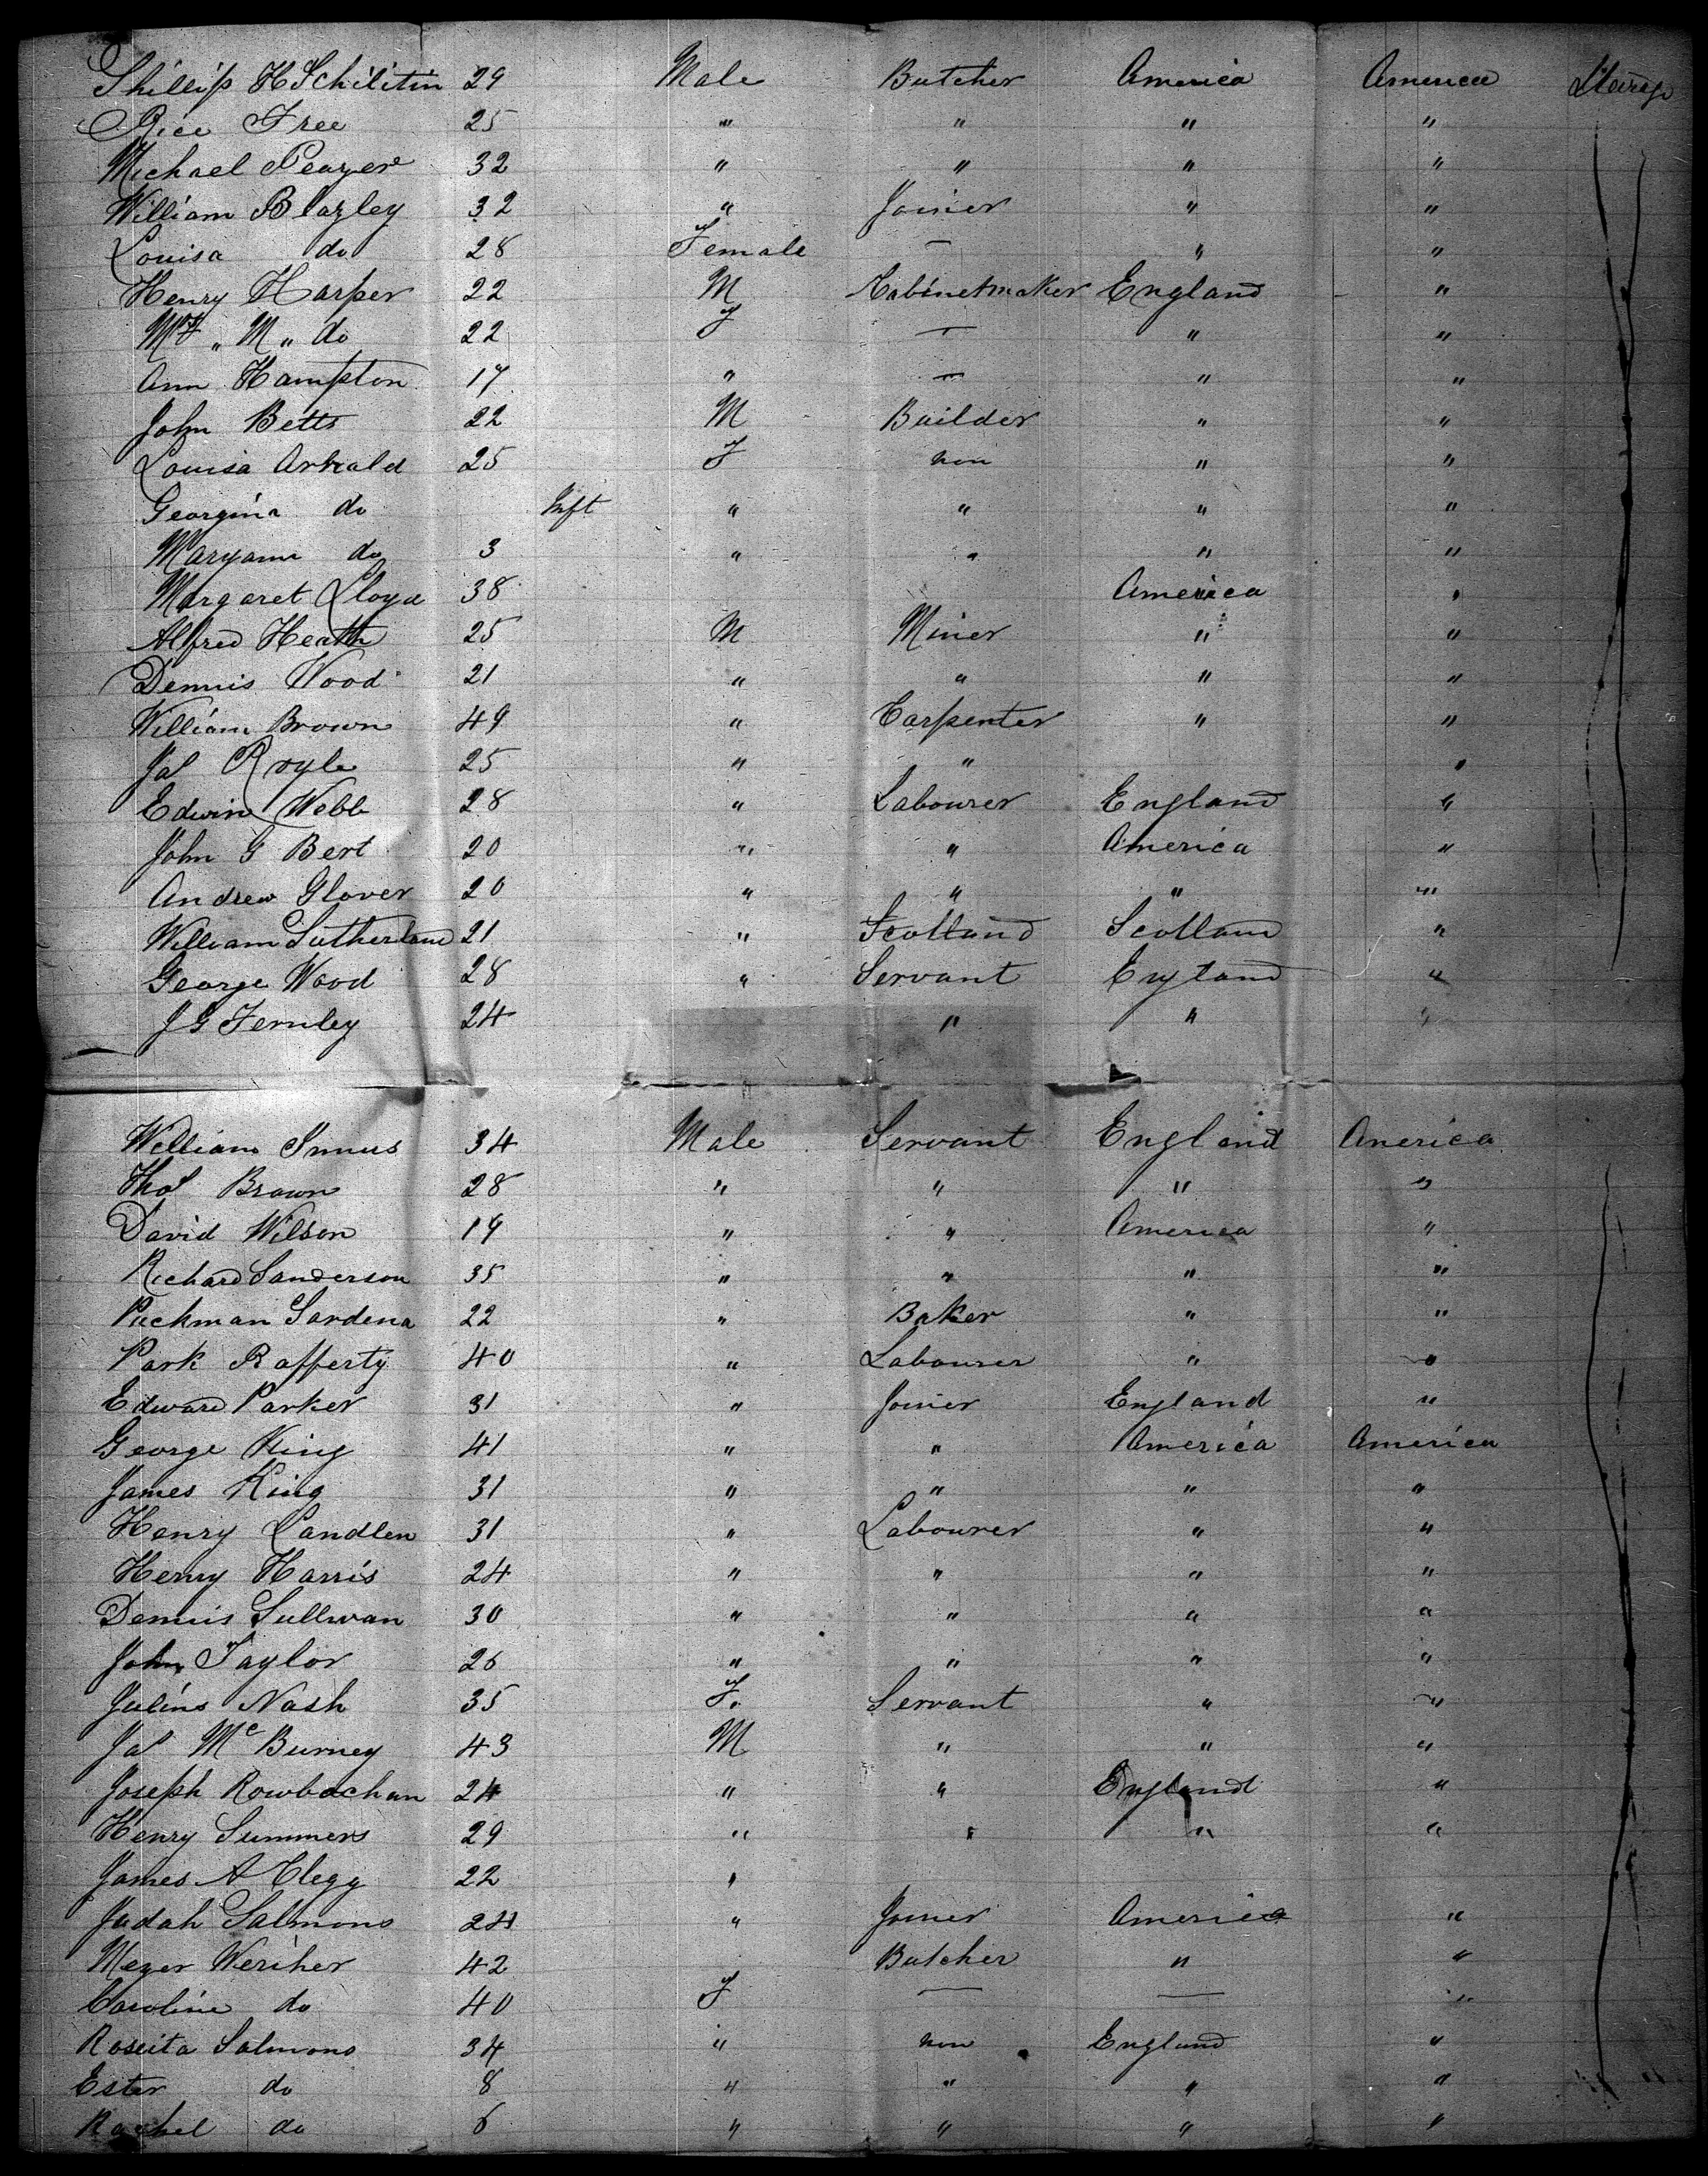 Phillip H Schilitin 29 Male Butcher America America Steerage
Rice Free 25 " " " "
Michael Peazer 32 " " " "
William Blazley 32 " Joiner " "
Louisa do 28 Female — " "
Henry Harper 22 M Cabinetmaker England "
Mrs " M " do 22 F — " "
Ann Hampton 17 " — " "
John Betts 22 M Builder " "
Louisa Arkald 25 F non " "
Georgina do Inft " " " "
Maryann do 3 " " " "
Margaret Lloyd 38 America "
Alfred Heath 25 M Miner " "
Dennis Wood 21 " " " "
William Brown 49 " Carpenter " "
Jas Royle 25 " " "
Edwin Webb 28 " Labourer England "
John G Bert 20 " " America "
Andrew Glover 20 " " " "
William Sutherland 21 " Scotland Scotland "
George Wood 28 " Servant England "
J G Fernley 24 " " "
William Innus 34 Male Servant England America
Thos Brown 28 " " " "
David Wilson 19 " " America "
Richard Sanderson 35 " " " "
Puckman Sardena 22 " Baker " "
Park Rafferty 40 " Labourer " "
Edward Parker 31 " Joiner England "
George King 41 " " America America
James King 31 " " " "
Henry Candlen 31 " Labourer " "
Henry Harris 24 " " " "
Dennis Sullivan 30 " " " "
John Taylor 26 " " " "
Julins Nash 35 F. Servant " "
Jas McBurney 43 M " " "
Joseph Rowbachan 24 " " England "
Henry Summers 29 " " " "
James A Clegg 22 "
Judah Salmons 24 " Joiner America "
Meyer Weriher 42 Butcher " "
Caroline do 40 F — — "
Roseita Salmons 34 " non England "
Ester do 8 " " " "
Rachel do 6 " " " "